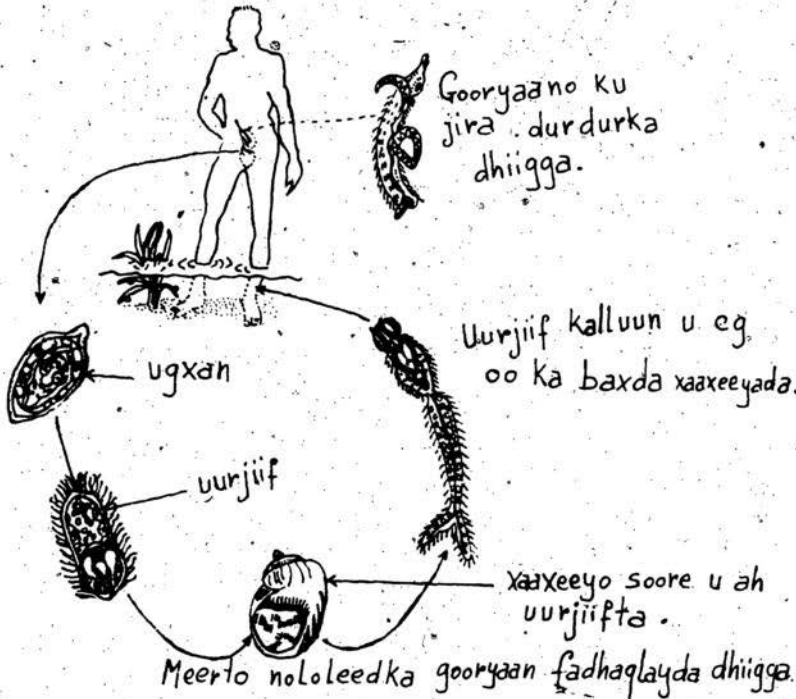 Gooryaano ku
jira durdurka
dhiigga.
Uurjiif kalluun u eg
oo ka baxda xaaxeeyada.
ugxan
uurjiif
xaaxeeyo soore u ah
uurjiifta.
Meerto nololeedka gooryaan fadhaglayda dhiigga.